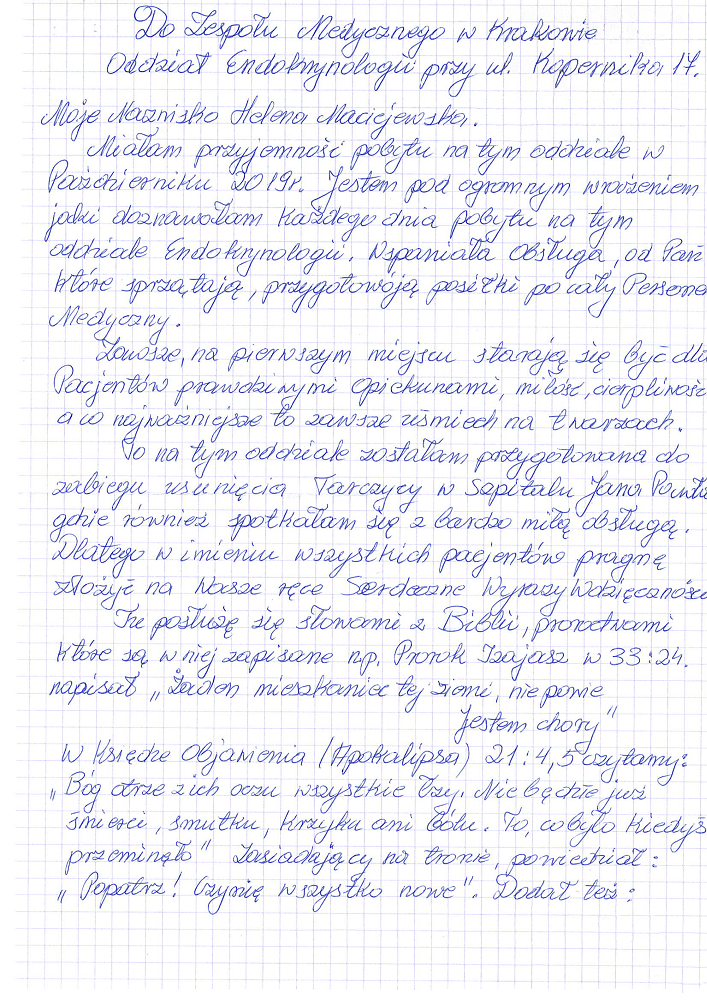 Do Zespołu Medycznego w Krakowie
Oddział Endokrynologii przy ul. Kopernika 17.
Moje Nazwisko Helena Maciejewska.
Miałam przyjemność pobytu na tym oddziale w
Październiku 2019r. Jestem pod ogromnym wrażeniem
jaki doznawałam każdego dnia pobytu na tym
oddziale Endokrynologii. Wspaniała Obsługa, od Pań
które sprzątają, przygotowają posiłki po cały Persone
Medyczny.
Zawsze, na pierwszym miejscu starają się być dla
Pacjentów prawdziwymi Opiekunami, miłość, cierpliwość
a co najważniejsze to zawsze uśmiech na twarzach.
To na tym oddziale zostałam przygotowana do
zabiegu usunięcia Tarczycy w Szpitalu Jana Pawła
gdzie również spotkałam się z bardzo miłą obsługą.
Dlatego w imieniu wszystkich pacjentów pragnę
złożyć na Wasze ręce Serdeczne Wyrazy Wdzięczności
Tu posłużę się słowami z Biblii, proroctwami
które są w niej zapisane np. Prorok Izajasz w 33:24.
napisał „Żaden mieszkaniec tej ziemi, nie powie
Jestem chory"
W Księdze Objawienia (Apokalipsa) 21:4,5 czytamy:
„Bóg otrze z ich oczu wszystkie łzy. Nie będzie już
śmierci, smutku, krzyku ani bólu. To, co było kiedyś
przeminęło" Zasiadający na tronie, powiedział:
„Popatrz! Czynię wszystko nowe". Dodał też: